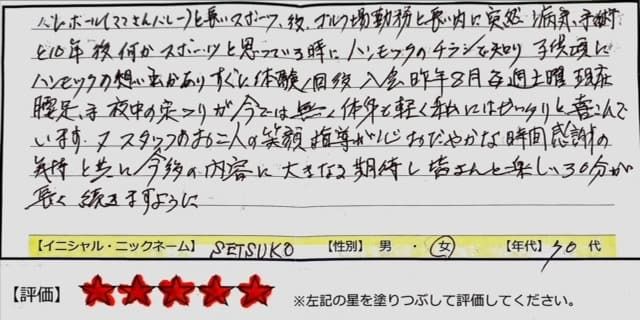 バレーボール(ママさんバレー)と長いスポーツ、後、ゴルフ場勤務と長い内に突然の病気、手術
と10年後何かスポーツと思っている時にハンモックのチラシを知り子供頃に
ハンモックの想い出がありすぐに体験1回後入会昨年8月毎週土曜現在
腰足、手夜中の末つりが今では無く体身も軽く私にはぴったりと喜こんで
います。又スタッフのお二人の笑顔指導が心おだやかな時間感謝の
気持と共に今後の内容に大きなる期待し皆さんと楽しい30分が
長く続きますように
【イニシャル・ニックネーム】 SETSUKO 【性別】 男 ・ 女 【年代】 70 代
【評価】 ★★★★★ ※左記の星を塗りつぶして評価してください。